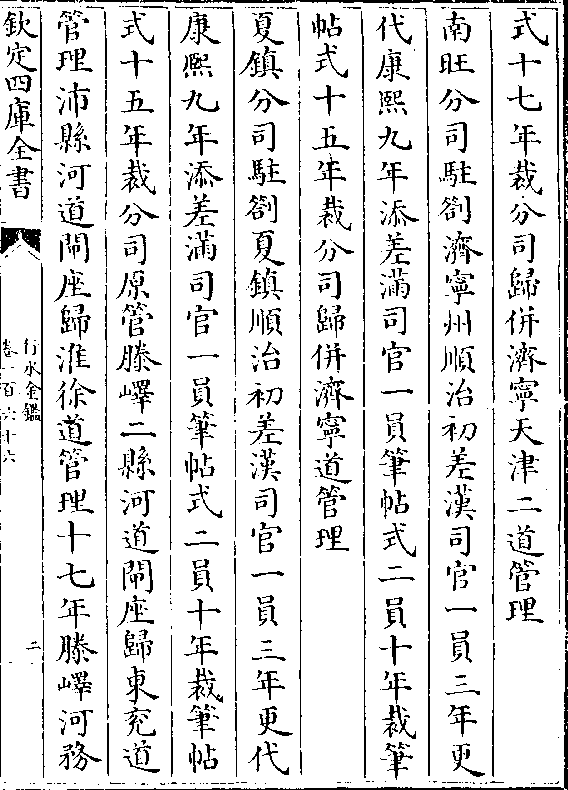 式十七年裁分司歸併濟寧天津二道管理
南旺分司駐劄濟寧州順治初差漢司官一員三年更
代康熙九年添差滿司官一員筆帖式二員十年裁筆
帖式十五年裁分司歸併濟寧道管理
夏鎮分司駐劄夏鎮順治初差漢司官一員三年更代
康熙九年添差滿司官一員筆帖式二員十年裁筆帖
式十五年裁分司原管滕嶧二縣河道閘座歸東兖道
管理沛縣河道閘座歸淮徐道管理十七年滕嶧河務
欽定四庫全書
行水金鑑
卷一百六十六
二